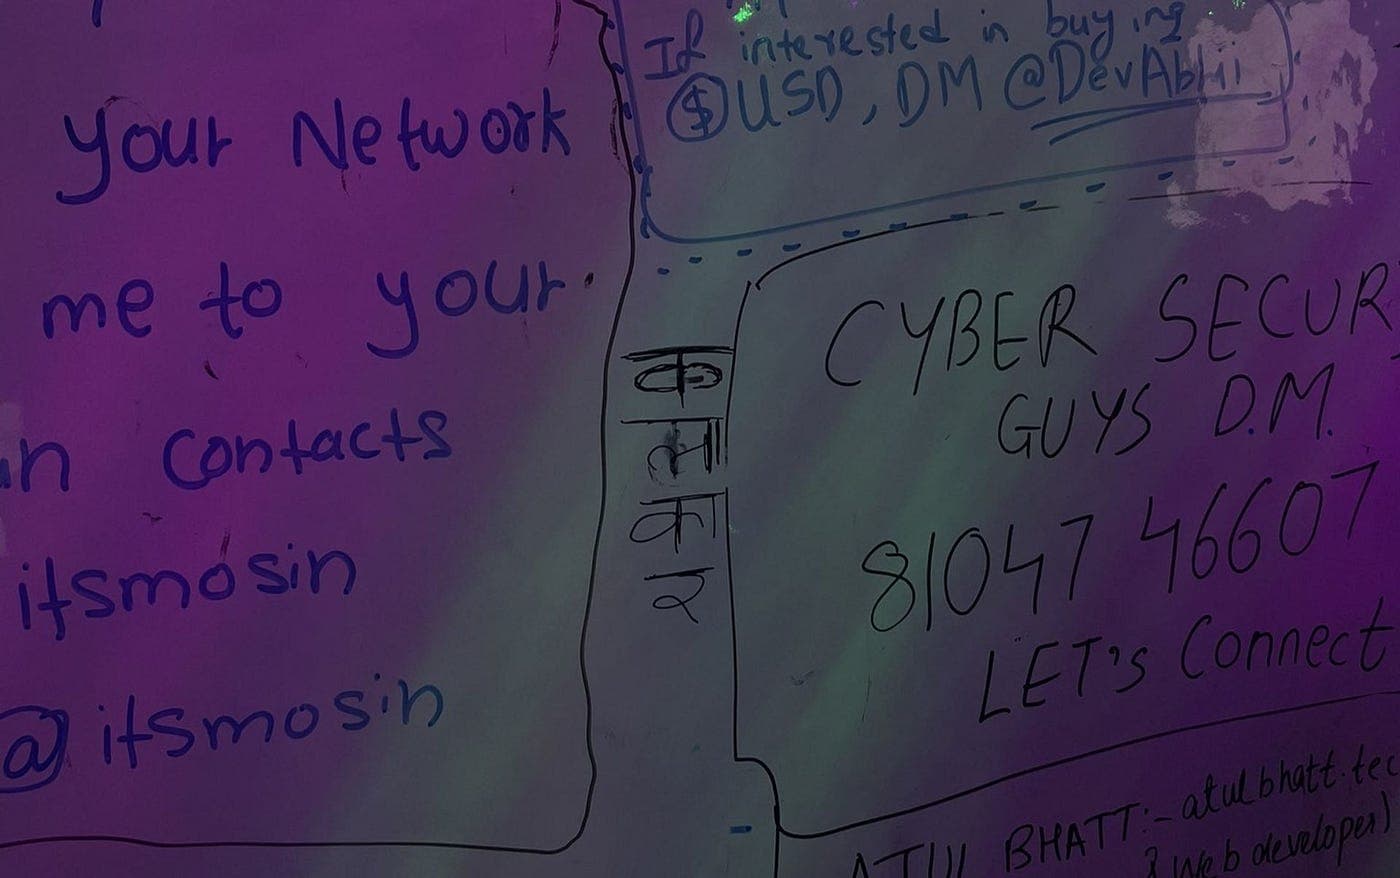 your Network
me to your
in contacts
itsmosin
@itsmosin
If interested in buying
$ USD, DM @DevAbhii
CYBER SECUR
GUYS D.M.
81047 46607
LET's Connect
ATUL BHATT:- atulbhatt.tec
& Web developer)